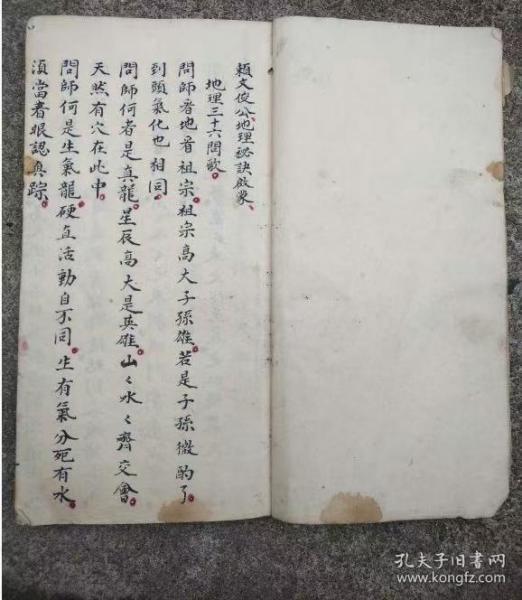 賴文俊公地理秘訣啟蒙
地理三十六問歌
問師看地看祖宗祖宗高大子孫雄若是子孫微酌了
到頭氣化也相同
問師何者是真龍星辰高大是英雄山々水々齊交會
天然有穴在此中
問師何是生氣龍硬直活動自不同生有氣兮死有水
須當着眼認真踪
孔夫子旧书网
www.kongfz.com